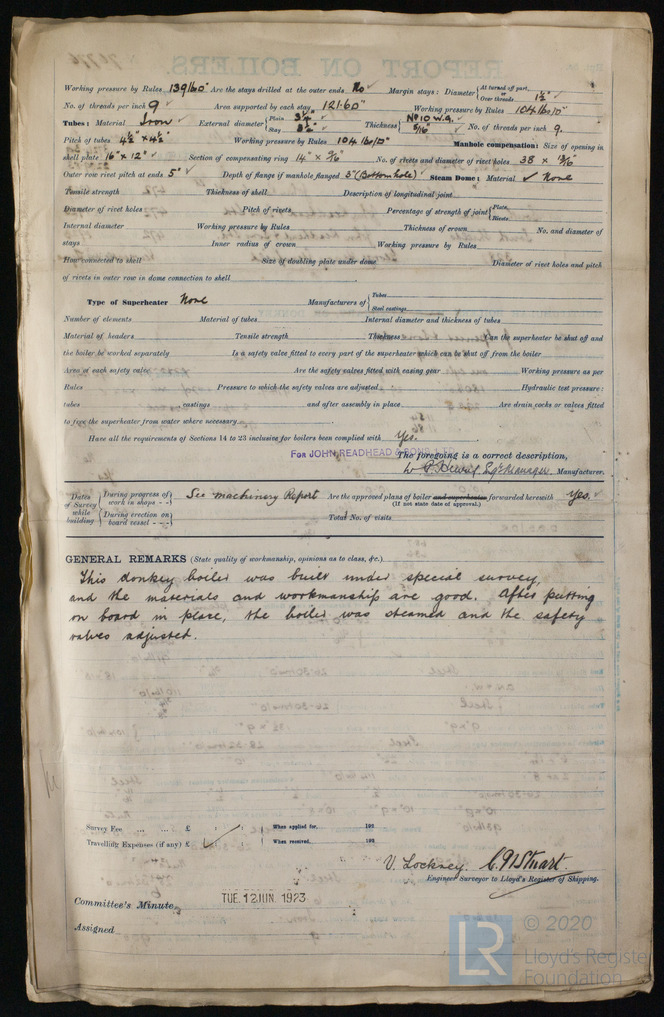 Working pressure by Rules 139 lb □" Are the stays drilled at the outer ends No Margin stays: Diameter { At turned off part, or Over threads 1½"
No. of threads per inch 9 Area supported by each stay 121.60" Working pressure by Rules 104 lbs/□"
Tubes: Material Iron External diameter { Plain 3¼" Stay 3½" Thickness { No 10 W.G. 5/16" No. of threads per inch 9.
Pitch of tubes 4½" × 4½" Working pressure by Rules 104 lbs/□" Manhole compensation: Size of opening in
shell plate 16" × 12" Section of compensating ring No. of rivets and diameter of rivet holes 38 × 13/16"
Outer row rivet pitch at ends 5" Depth of flange if manhole flanged 3" (Bottom hole) Steam Dome: Material None
Tensile strength Thickness of shell Description of longitudinal joint
Diameter of rivet holes Pitch of rivets Percentage of strength of joint { Plate Rivets
Internal diameter Working pressure by Rules Thickness of crown No. and diameter of
stays Inner radius of crown Working pressure by Rules
How connected to shell Size of doubling plate under dome Diameter of rivet holes and pitch
of rivets in outer row in dome connection to shell
Type of Superheater None Manufacturers of { Tubes Steel castings
Number of elements Material of tubes Internal diameter and thickness of tubes
Material of headers Tensile strength Thickness Can the superheater be shut off and
the boiler be worked separately Is a safety valve fitted to every part of the superheater which can be shut off from the boiler
Area of each safety valve Are the safety valves fitted with easing gear Working pressure as per
Rules Pressure to which the safety valves are adjusted Hydraulic test pressure:
tubes castings and after assembly in place Are drain cocks or valves fitted
to free the superheater from water where necessary
Have all the requirements of Sections 14 to 23 inclusive for boilers been complied with Yes.
For JOHN READHEAD & SONS, LTD. The foregoing is a correct description,
Manufacturer.
Dates of Survey while building { During progress of work in shops - - } See Machinery Report Are the approved plans of boiler and superheater forwarded herewith Yes.
(If not state date of approval.)
{ During erection on board vessel - - - } Total No. of visits
GENERAL REMARKS (State quality of workmanship, opinions as to class, &c.)
This donkey boiler was built under special survey,
and the materials and workmanship are good. After putting
on board in place, the boiler was steamed and the safety
valves adjusted.
Survey Fee ... ... £ : : When applied for, 192
Travelling Expenses (if any) £ : : When received, 192
C. N. Stuart.
Engineer Surveyor to Lloyd's Register of Shipping.
Committee's Minute TUE. 12 JUN. 1923
Assigned
© 2020
Lloyd's Register
Foundation
LR